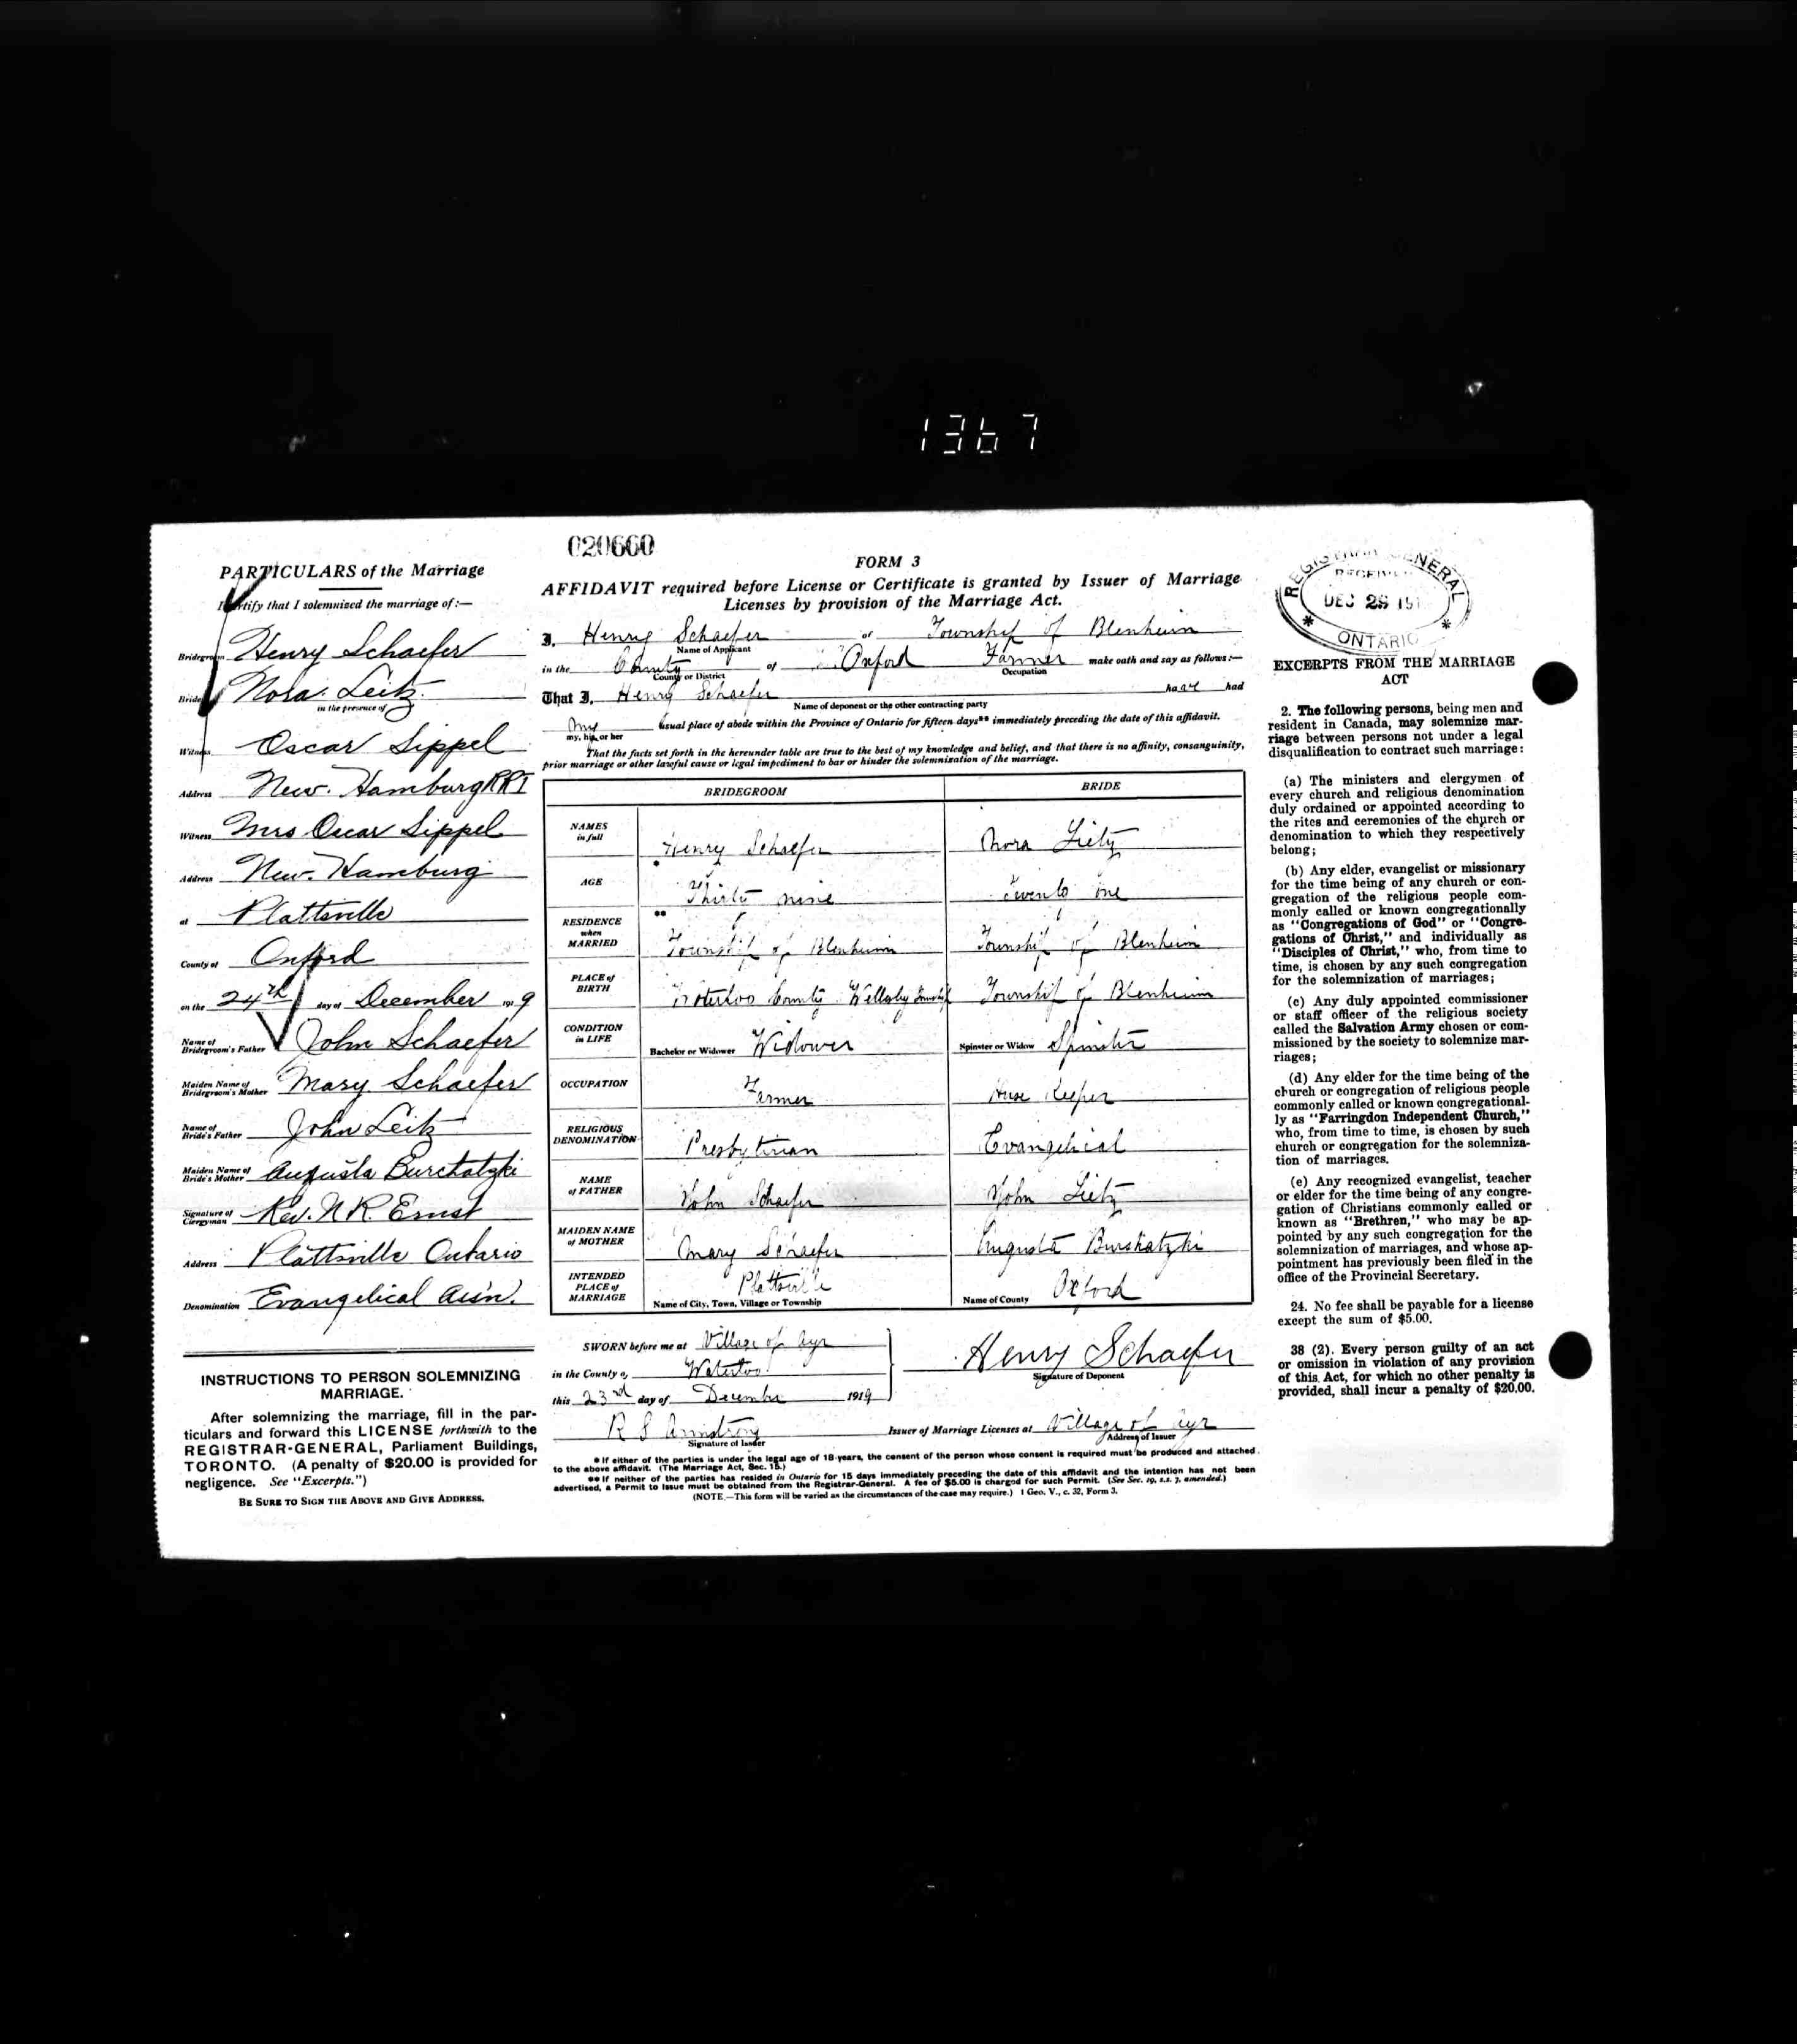 1367
020660
PARTICULARS of the Marriage
I certify that I solemnized the marriage of:—
Bridegroom Henry Schaefer
Bride Nora Leitz
in the presence of
Witness Oscar Sippel
Address New. Hamburg RR1
Witness Mrs Oscar Sippel
Address New. Hamburg
at Plattsville
County of Oxford
on the 24th day of December 1919
Name of Bridegroom's Father John Schaefer
Maiden Name of Bridegroom's Mother Mary Schaefer
Name of Bride's Father John Leitz
Maiden Name of Bride's Mother Augusta Burchatzki
Signature of Clergyman Rev. N R. Ernst
Address Plattsville Ontario
Denomination Evangelical Ass'n.
INSTRUCTIONS TO PERSON SOLEMNIZING
MARRIAGE.
After solemnizing the marriage, fill in the par-
ticulars and forward this LICENSE forthwith to the
REGISTRAR-GENERAL, Parliament Buildings,
TORONTO. (A penalty of $20.00 is provided for
negligence. See "Excerpts.")
BE SURE TO SIGN THE ABOVE AND GIVE ADDRESS.
FORM 3
AFFIDAVIT required before License or Certificate is granted by Issuer of Marriage
Licenses by provision of the Marriage Act.
I, Henry Schaefer of Township of Blenheim
Name of Applicant
in the County of Oxford Farmer make oath and say as follows:—
County or District Occupation
That I, Henry Schaefer have had
Name of deponent or the other contracting party
my usual place of abode within the Province of Ontario for fifteen days** immediately preceding the date of this affidavit.
my, his or her
That the facts set forth in the hereunder table are true to the best of my knowledge and belief, and that there is no affinity, consanguinity,
prior marriage or other lawful cause or legal impediment to bar or hinder the solemnization of the marriage.
BRIDEGROOM BRIDE
NAMES in full Henry Schaefer Nora Lietz
AGE * Thirty nine Twenty one
RESIDENCE when MARRIED ** Township of Blenheim Township of Blenheim
PLACE of BIRTH Waterloo County Township of Blenheim
CONDITION in LIFE Bachelor or Widower Widower Spinster or Widow Spinster
OCCUPATION Farmer House Keeper
RELIGIOUS DENOMINATION Presbyterian Evangelical
NAME of FATHER John Schaefer John Lietz
MAIDEN NAME of MOTHER Mary Schaefer Augusta Burshatzki
INTENDED PLACE of MARRIAGE Plattsville Oxford
Name of City, Town, Village or Township Name of County
SWORN before me at Village of Ayr
in the County of Waterloo
this 23rd day of December 1919
Henry Schaefer
Signature of Deponent
R S Armstrong Issuer of Marriage Licenses at Village of Ayr
Signature of Issuer Address of Issuer
* If either of the parties is under the legal age of 18 years, the consent of the person whose consent is required must be produced and attached
to the above affidavit. (The Marriage Act, Sec. 15.)
** If neither of the parties has resided in Ontario for 15 days immediately preceding the date of this affidavit and the intention has not been
advertised, a Permit to Issue must be obtained from the Registrar-General. A fee of $5.00 is charged for such Permit. (See Sec. 19, s.s. 3, amended.)
(NOTE.—This form will be varied as the circumstances of the case may require.) 1 Geo. V., c. 32, Form 3.
REGISTRAR GENERAL
RECEIVED
DEC 29 191
* ONTARIO *
EXCERPTS FROM THE MARRIAGE
ACT
2. The following persons, being men and
resident in Canada, may solemnize mar-
riage between persons not under a legal
disqualification to contract such marriage:
(a) The ministers and clergymen of
every church and religious denomination
duly ordained or appointed according to
the rites and ceremonies of the church or
denomination to which they respectively
belong;
(b) Any elder, evangelist or missionary
for the time being of any church or con-
gregation of the religious people com-
monly called or known congregationally
as "Congregations of God" or "Congre-
gations of Christ," and individually as
"Disciples of Christ," who, from time to
time, is chosen by any such congregation
for the solemnization of marriages;
(c) Any duly appointed commissioner
or staff officer of the religious society
called the Salvation Army chosen or com-
missioned by the society to solemnize mar-
riages;
(d) Any elder for the time being of the
church or congregation of religious people
commonly called or known congregational-
ly as "Farringdon Independent Church,"
who, from time to time, is chosen by such
church or congregation for the solemniza-
tion of marriages.
(e) Any recognized evangelist, teacher
or elder for the time being of any congre-
gation of Christians commonly called or
known as "Brethren," who may be ap-
pointed by any such congregation for the
solemnization of marriages, and whose ap-
pointment has previously been filed in the
office of the Provincial Secretary.
24. No fee shall be payable for a license
except the sum of $5.00.
38 (2). Every person guilty of an act
or omission in violation of any provision
of this Act, for which no other penalty is
provided, shall incur a penalty of $20.00.